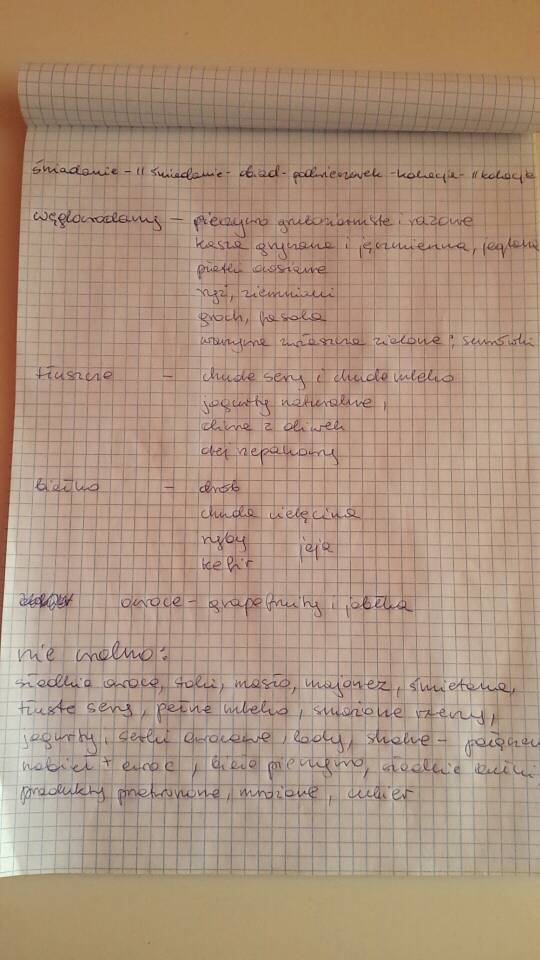 śniadanie - II śniadanie - obiad - podwieczorek - kolacja - II kolacja
węglowodany - pieczywo gruboziarniste i razowe
kasza gryczana i jęczmienna, jaglana
płatki owsiane
ryż, ziemniaki
groch, fasola
warzywa zwłaszcza zielone; surówki
tłuszcze - chude sery i chude mleko
jogurty naturalne,
oliwa z oliwek
olej rzepakowy
białko - drób
chuda cielęcina
ryby jaja
kefir
owoce - grapefruity i jabłka
nie wolno:
słodkie owoce, soki, masło, majonez, śmietana,
tłuste sery, pełne mleko, smażone rzeczy,
jogurty, serki owocowe, lody, shake -
nabiał + owoc, białe pieczywo, słodkie
produkty przetworzone, mrożone, cukier